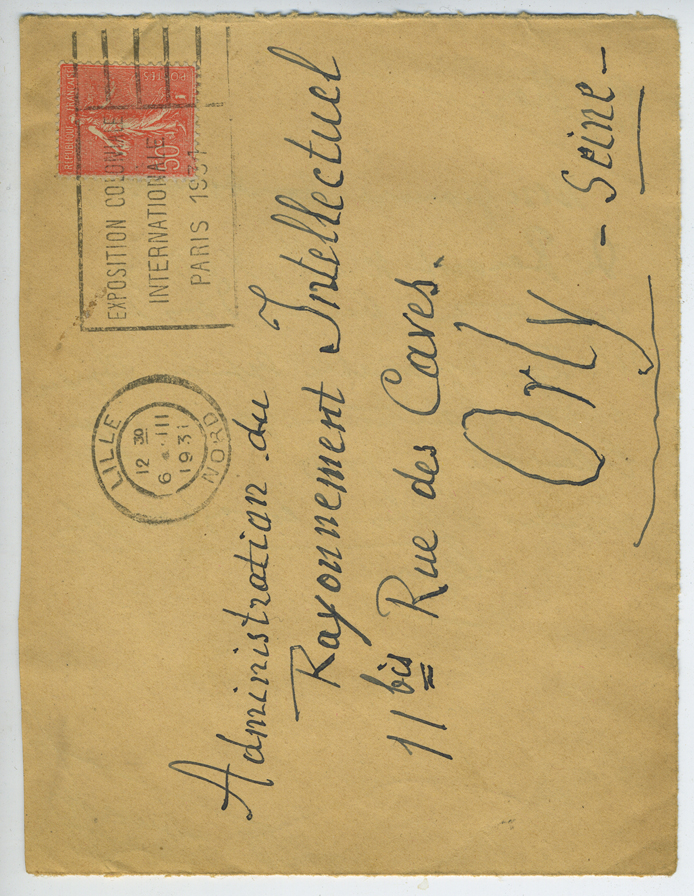 REPUBLIQUE FRANÇAISE
POSTES
50c
EXPOSITION COLONIALE
INTERNATIONALE
PARIS 1931
LILLE
12 30
6 - III
1931
NORD
Administration du
Rayonnement Intellectuel
11 bis Rue des Caves.
Orly
- Seine -